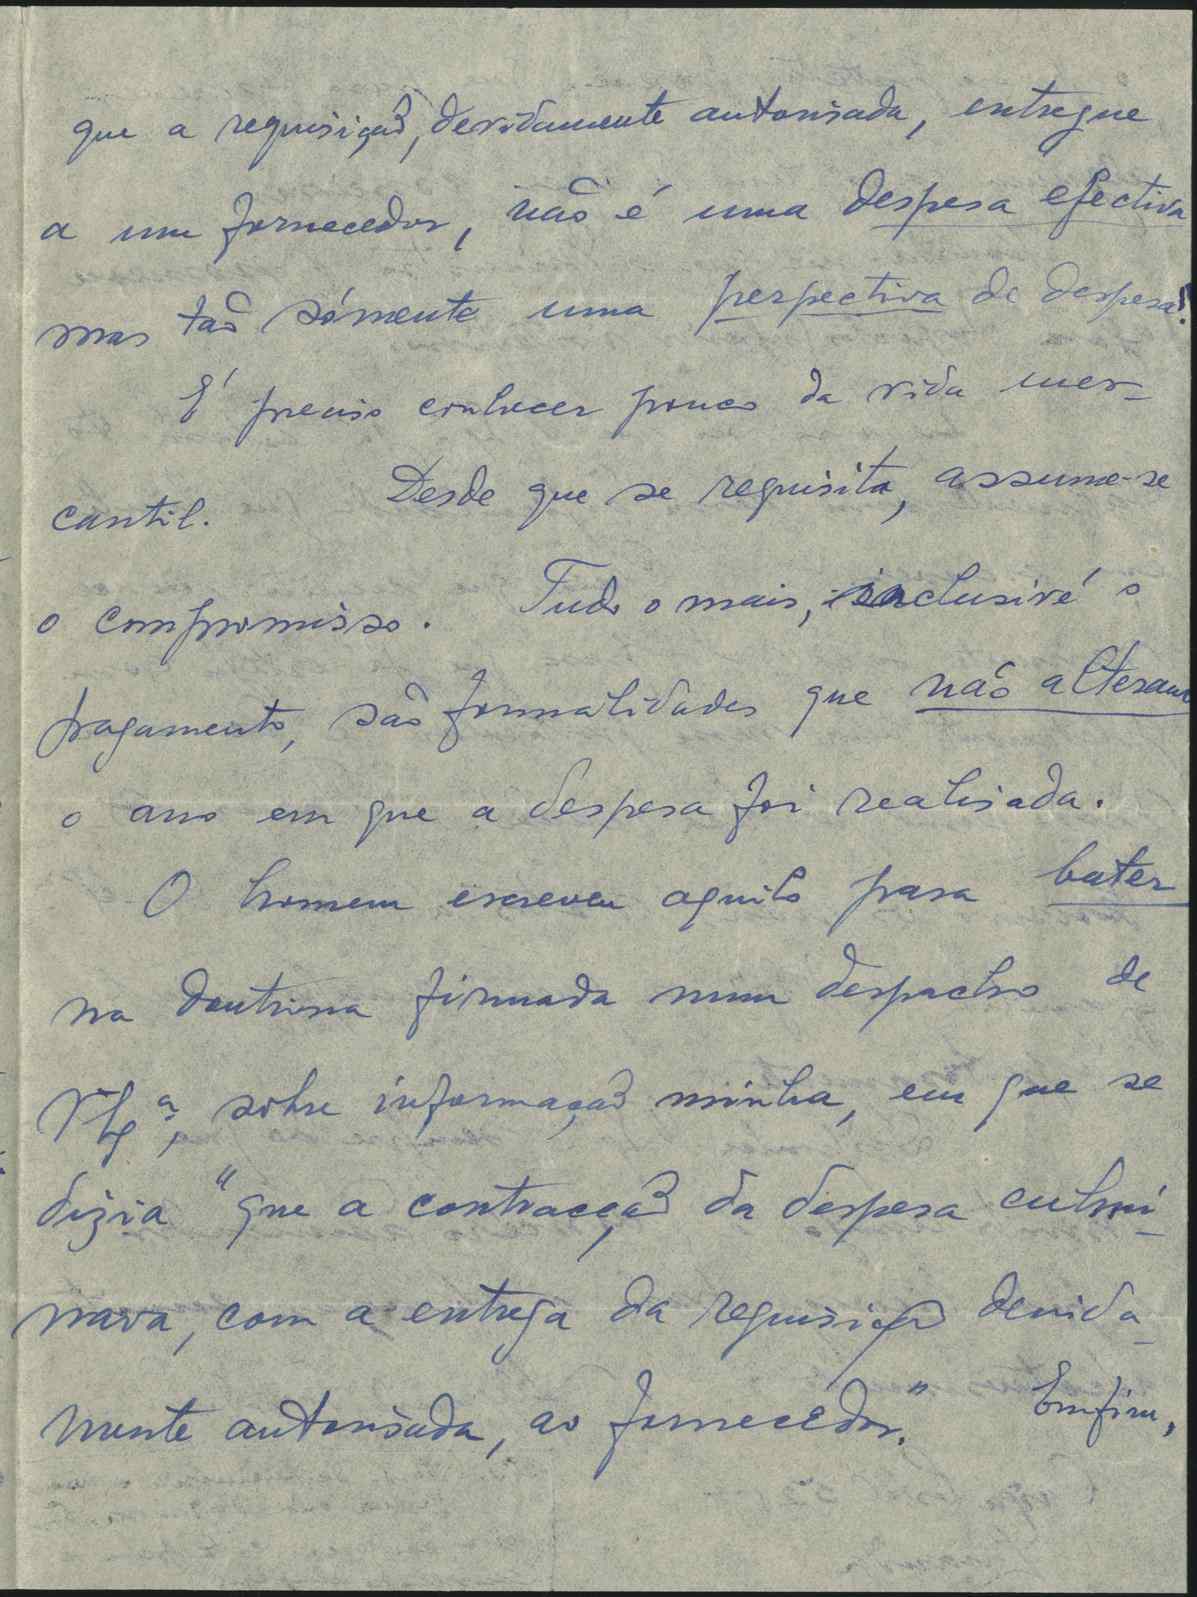 que a requisição, devidamente autorisada, entregue
a um fornecedor, não é uma despesa efectiva
mas tão sómente uma perspectiva de despesa!
É preciso conhecer pouco da vida mer-
cantil. Desde que se requisita, assume-se
o compromisso. Tudo o mais, inclusivé o
pagamento, são formalidades que não alteram
o ano em que a despesa foi realisada.
O homem escreveu aquilo para bater
na doutrina firmada num despacho de
V. Ex.ª, sobre informação minha, em que se
dizia "que a contracção da despesa culmi-
nava, com a entrega da requisição devida-
mente autorisada, ao fornecedor." Emfim,